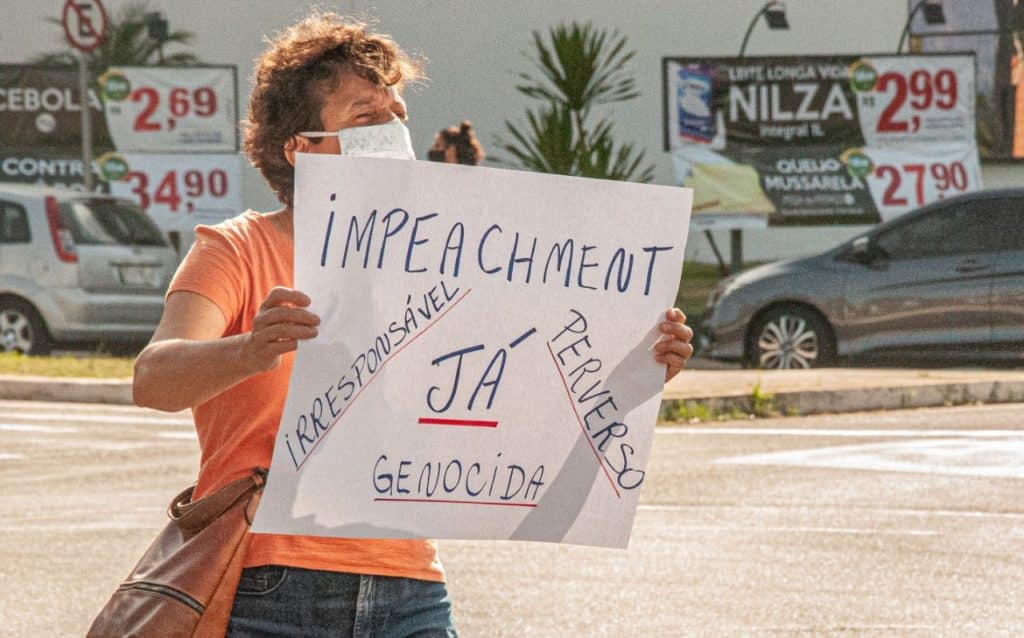 IMPEACHMENT
IRRESPONSÁVEL
JÁ
PERVERSO
GENOCIDA
CEBOLA
2,69
CONTRA
34,90
LEITE LONGA VIDA
NILZA
integral 1L
R$ 2,99
QUEIJO
MUSSARELA
27,90